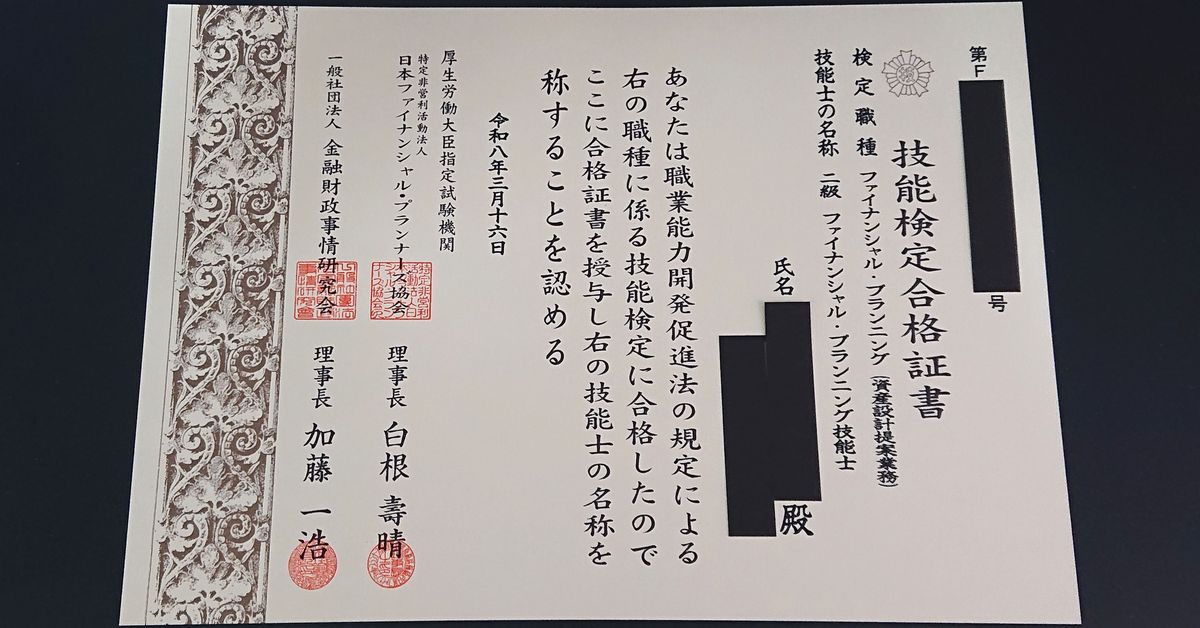 第F
号
技能検定合格証書
検定職種 ファイナンシャル・プランニング(資産設計提案業務)
技能士の名称 二級 ファイナンシャル・プランニング技能士
氏名
殿
あなたは職業能力開発促進法の規定による
右の職種に係る技能検定に合格したので
ここに合格証書を授与し右の技能士の名称を
称することを認める
令和八年三月十六日
厚生労働大臣指定試験機関
特定非営利活動法人
日本ファイナンシャル・プランナーズ協会 理事長 白根 壽晴
一般社団法人 金融財政事情研究会 理事長 加藤 一浩